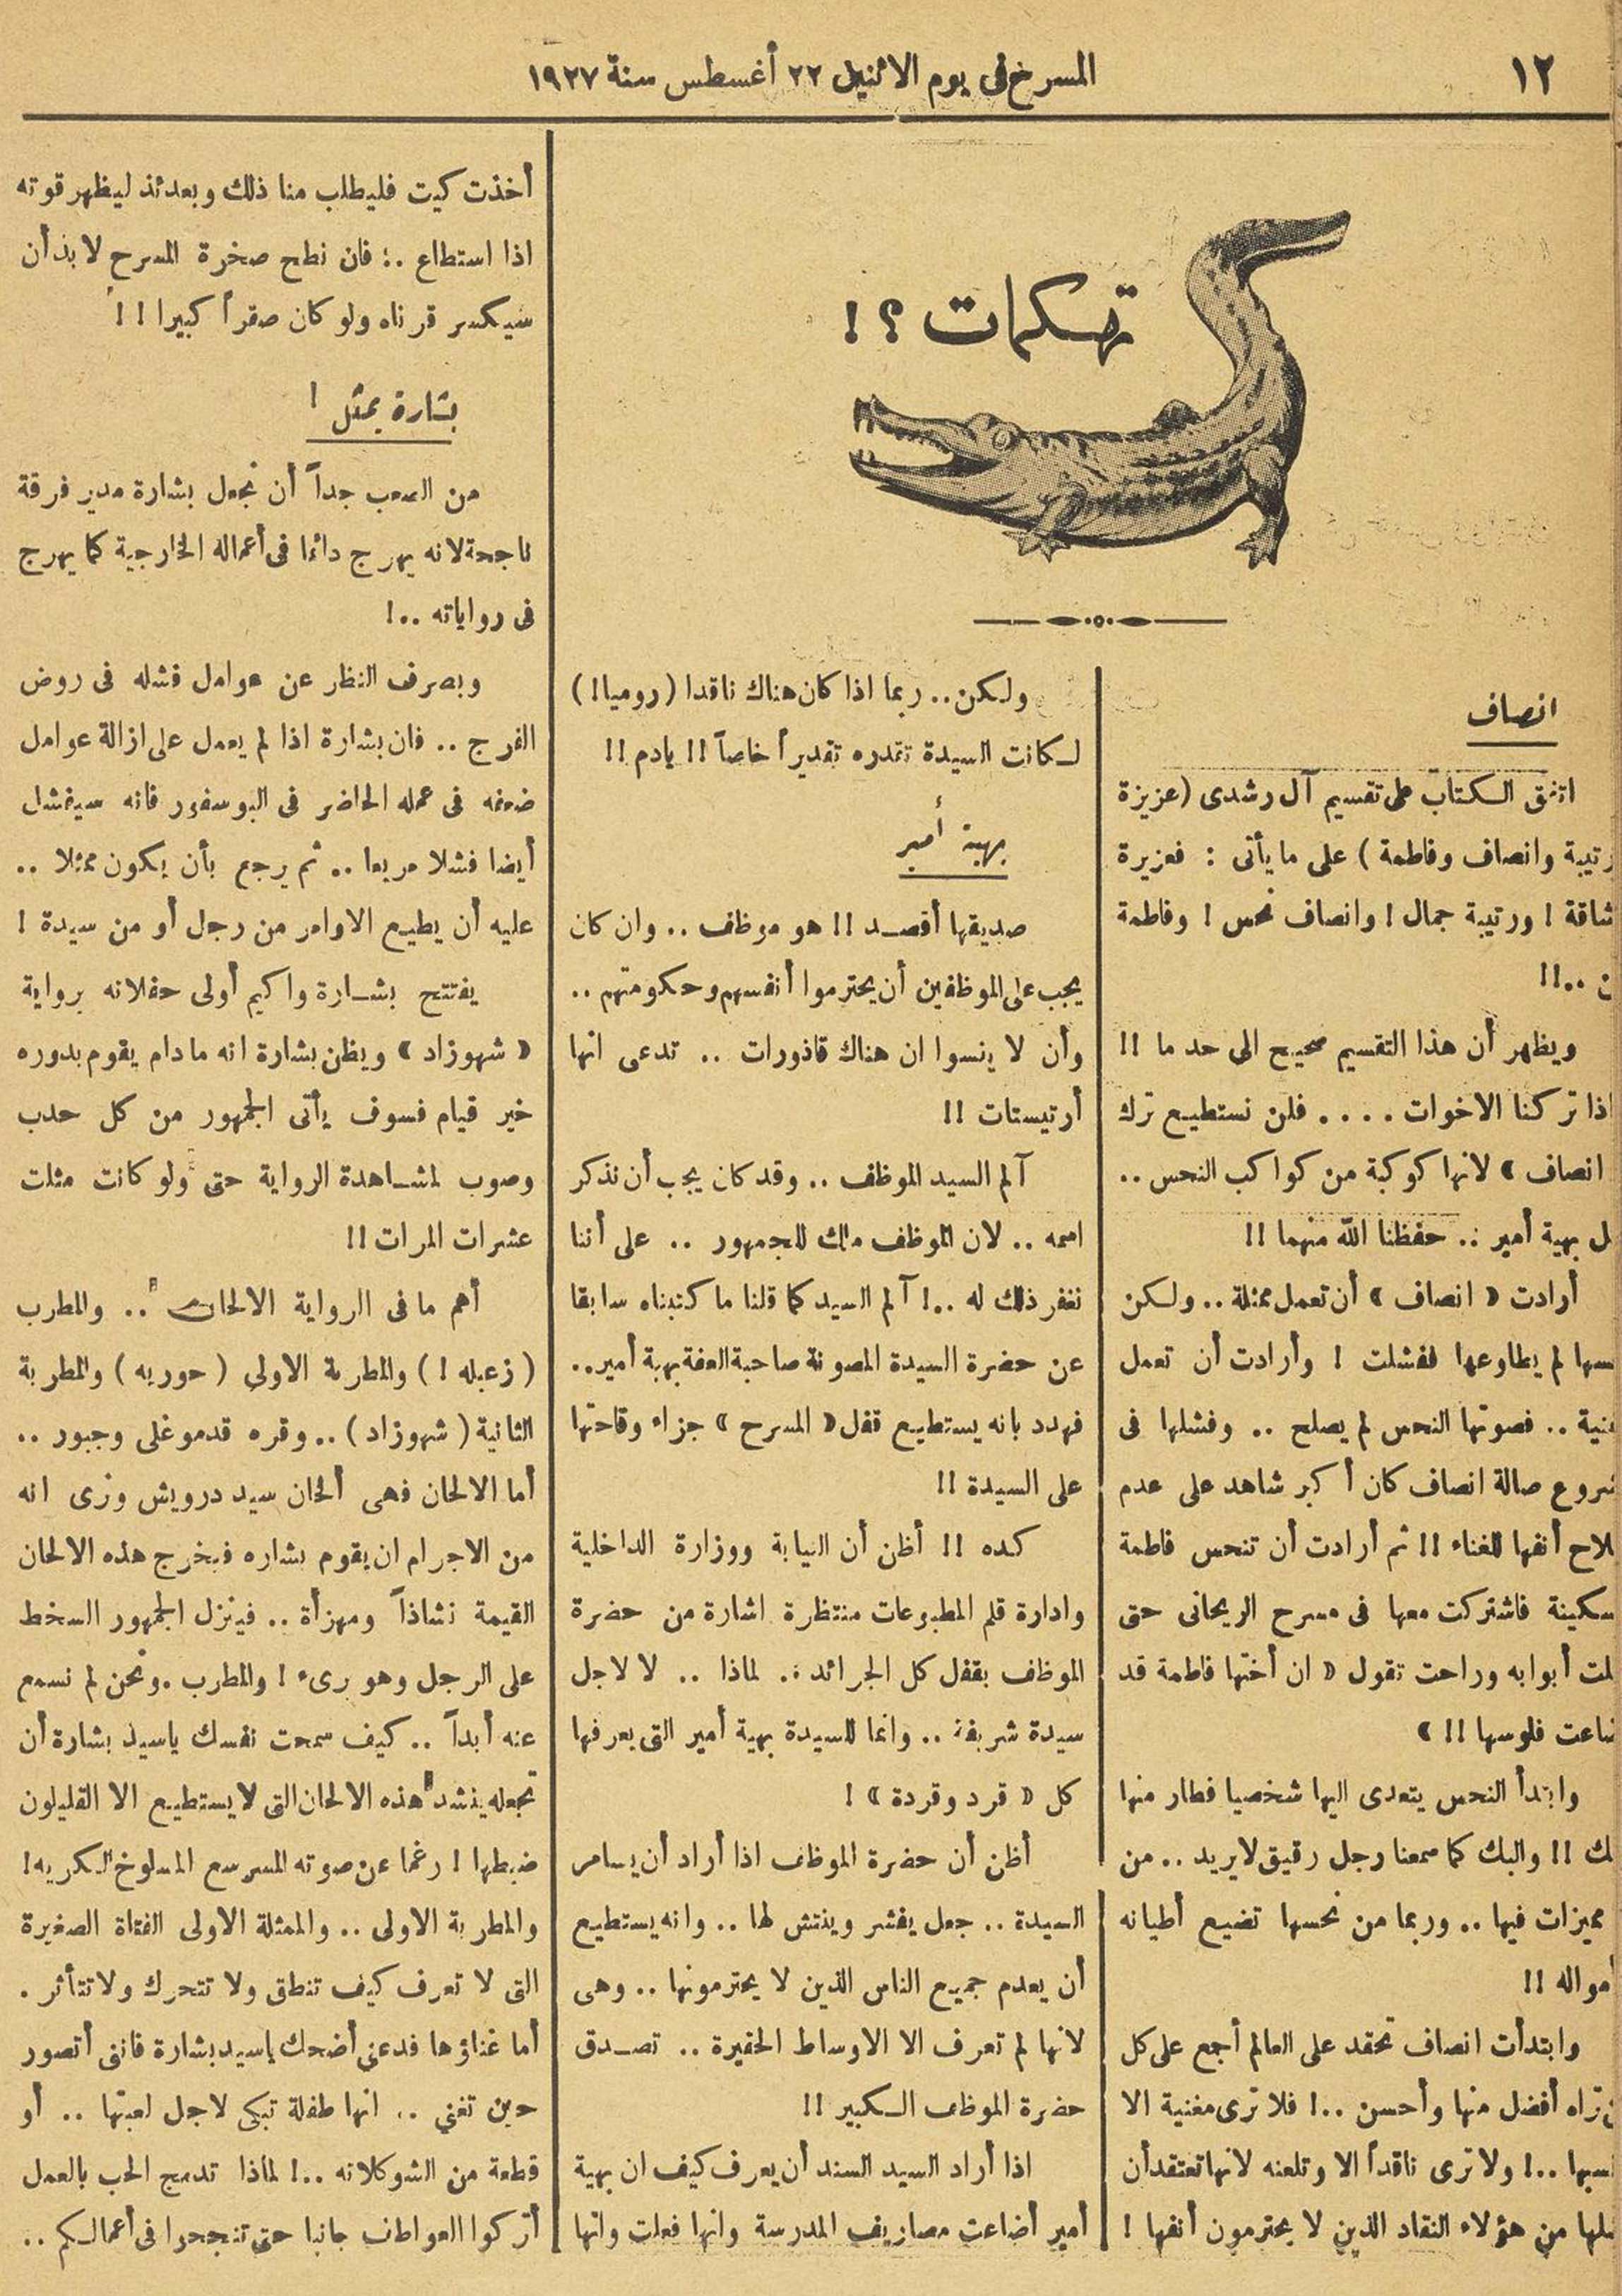 ١٢
المسرح في يوم الاثنين ٢٢ أغسطس سنة ١٩٢٧
تهكمات ؟ !
انصاف
اتفق الكتاب على تقسيم آل رشدى (عزيزة
رتيبة وانصاف وفاطمة ) على ما يأتى : فعزيزة
شاقة ! ورتيبة جمال ! وانصاف نحس ! وفاطمة
..!!
ويظهر أن هذا التقسيم صحيح الى حد ما !!
اذا تركنا الاخوات .... فلن نستطيع ترك
انصاف » لانها كوكبة من كواكب النحس ..
بهية أمير .. حفظنا الله منهما !!
أرادت « انصاف » أن تعمل ممثلة .. ولكن
لم يطاوعها ففشلت ! وأرادت أن تعمل
.. فصوتها النحس لم يصلح .. وفشلها فى
صالة انصاف كان أكبر شاهد على عدم
أنفها للغناء !! ثم أرادت أن تنحس فاطمة
فاشتركت معها فى مسرح الريحانى حتى
أبوابه وراحت تقول « ان أختها فاطمة قد
ضاعت فلوسها !! »
وابتدأ النحس يتعدى اليها شخصيا فطار منها
!! والبك كما سمعنا رجل رقيق لا يريد .. من
مميزات فيها .. وربما من نحسها تضيع أطيانه
أمواله !!
وابتدأت انصاف تحقد على العالم أجمع على كل
تراه أفضل منها وأحسن ..! فلا ترى مغنية الا
..! ولا ترى ناقداً الا وتلعنه لانها تعتقد أن
من هؤلاء النقاد الذين لا يحترمون أنفها !
ولكن .. ربما اذا كان هناك ناقدا ( روميا ! )
لكانت السيدة تقدره تقديراً خاصاً !! يادم !!
بهية أمير
صديقها أقصد !! هو موظف .. وان كان
يجب على الموظفين أن يحترموا أنفسهم وحكومتهم ..
وأن لا ينسوا ان هناك قاذورات .. تدعى انها
أرتيستات !!
آلم السيد الموظف .. وقد كان يجب أن نذكر
اسمه .. لان الموظف ملك للجمهور .. على أننا
نغفر ذلك له ..! آلم السيد كما قلنا ما كتبناه سابقا
عن حضرة السيدة المصونة صاحبة العفة بهية أمير ..
فهدد بانه يستطيع قفل « المسرح » جزاء وقاحتها
على السيدة !!
كده !! أظن أن النيابة ووزارة الداخلية
وادارة قلم المطبوعات منتظرة اشارة من حضرة
الموظف بقفل كل الجرائد .. لماذا .. لا لاجل
سيدة شريفة .. وانما للسيدة بهية أمير التى يعرفها
كل « قرد وقردة » !
أظن أن حضرة الموظف اذا أراد أن يسامر
السيدة .. جعل يفشر وينتش لها .. وانه يستطيع
أن يعدم جميع الناس الذين لا يحترمونها .. وهى
لانها لم تعرف الا الاوساط الحقيرة .. تصدق
حضرة الموظف الكبير !!
اذا أراد السيد السند أن يعرف كيف ان بهية
أمير أضاعت مصاريف المدرسة وانها فعلت وانها
أخذت كيت فليطلب منا ذلك وبعدئذ ليظهر قوته
اذا استطاع .. فان نطح صخرة المسرح لابد أن
سيكسر قرناه ولو كان صقراً كبيرا !!
بشارة يمثل !
من الصعب جداً أن نجعل بشارة مدير فرقة
ناجحة لانه يهرج دائما فى أعماله الخارجية كما يهرج
فى رواياته ..!
وبصرف النظر عن عوامل فشله فى روض
الفرج .. فان بشارة اذا لم يعمل على ازالة عوامل
ضعفه فى عمله الحاضر فى البوسفور فانه سيفشل
أيضا فشلا مريعا .. ثم يرجع بأن يكون ممثلا ..
عليه أن يطيع الاوامر من رجل أو من سيدة !
يفتتح بشارة واكيم أولى حفلاته برواية
« شهوزاد » ويظن بشارة انه ما دام يقوم بدوره
خير قيام فسوف يأتى الجمهور من كل حدب
وصوب لمشاهدة الرواية حتى ولو كانت مثلت
عشرات المرات !!
أهم ما فى الرواية الالحان .. والمطرب
( زعبله ! ) والمطربة الاولى ( حوريه ) والمطربة
الثانية ( شهوزاد ) .. وقره قدموغلى وجبور ..
أما الالحان فهى ألحان سيد درويش ونرى انه
من الاجرام ان يقوم بشاره فيخرج هذه الالحان
القيمة نشاذاً ومهزأة .. فينزل الجمهور السخط
على الرجل وهو برىء ! والمطرب . ونحن لم نسمع
عنه أبداً .. كيف سمحت نفسك ياسيد بشارة أن
تجعله ينشد هذه الالحان التى لا يستطيع الا القليلون
ضبطها ! رغما عن صوته المسرسع المسلوخ الكريه !
والمطربة الاولى .. والممثلة الاولى الفتاة الصغيرة
التى لا تعرف كيف تنطق ولا تتحرك ولا تتأثر .
أما غناؤها فدعنى أضحك ياسيد بشارة فاننى أتصور
حين تغنى .. انها طفلة تبكى لاجل لعبتها .. أو
قطعة من الشوكلاته ..! لماذا تدمج الحب بالعمل
أتركوا العواطف جانبا حتى تنجحوا فى أعمالكم ..